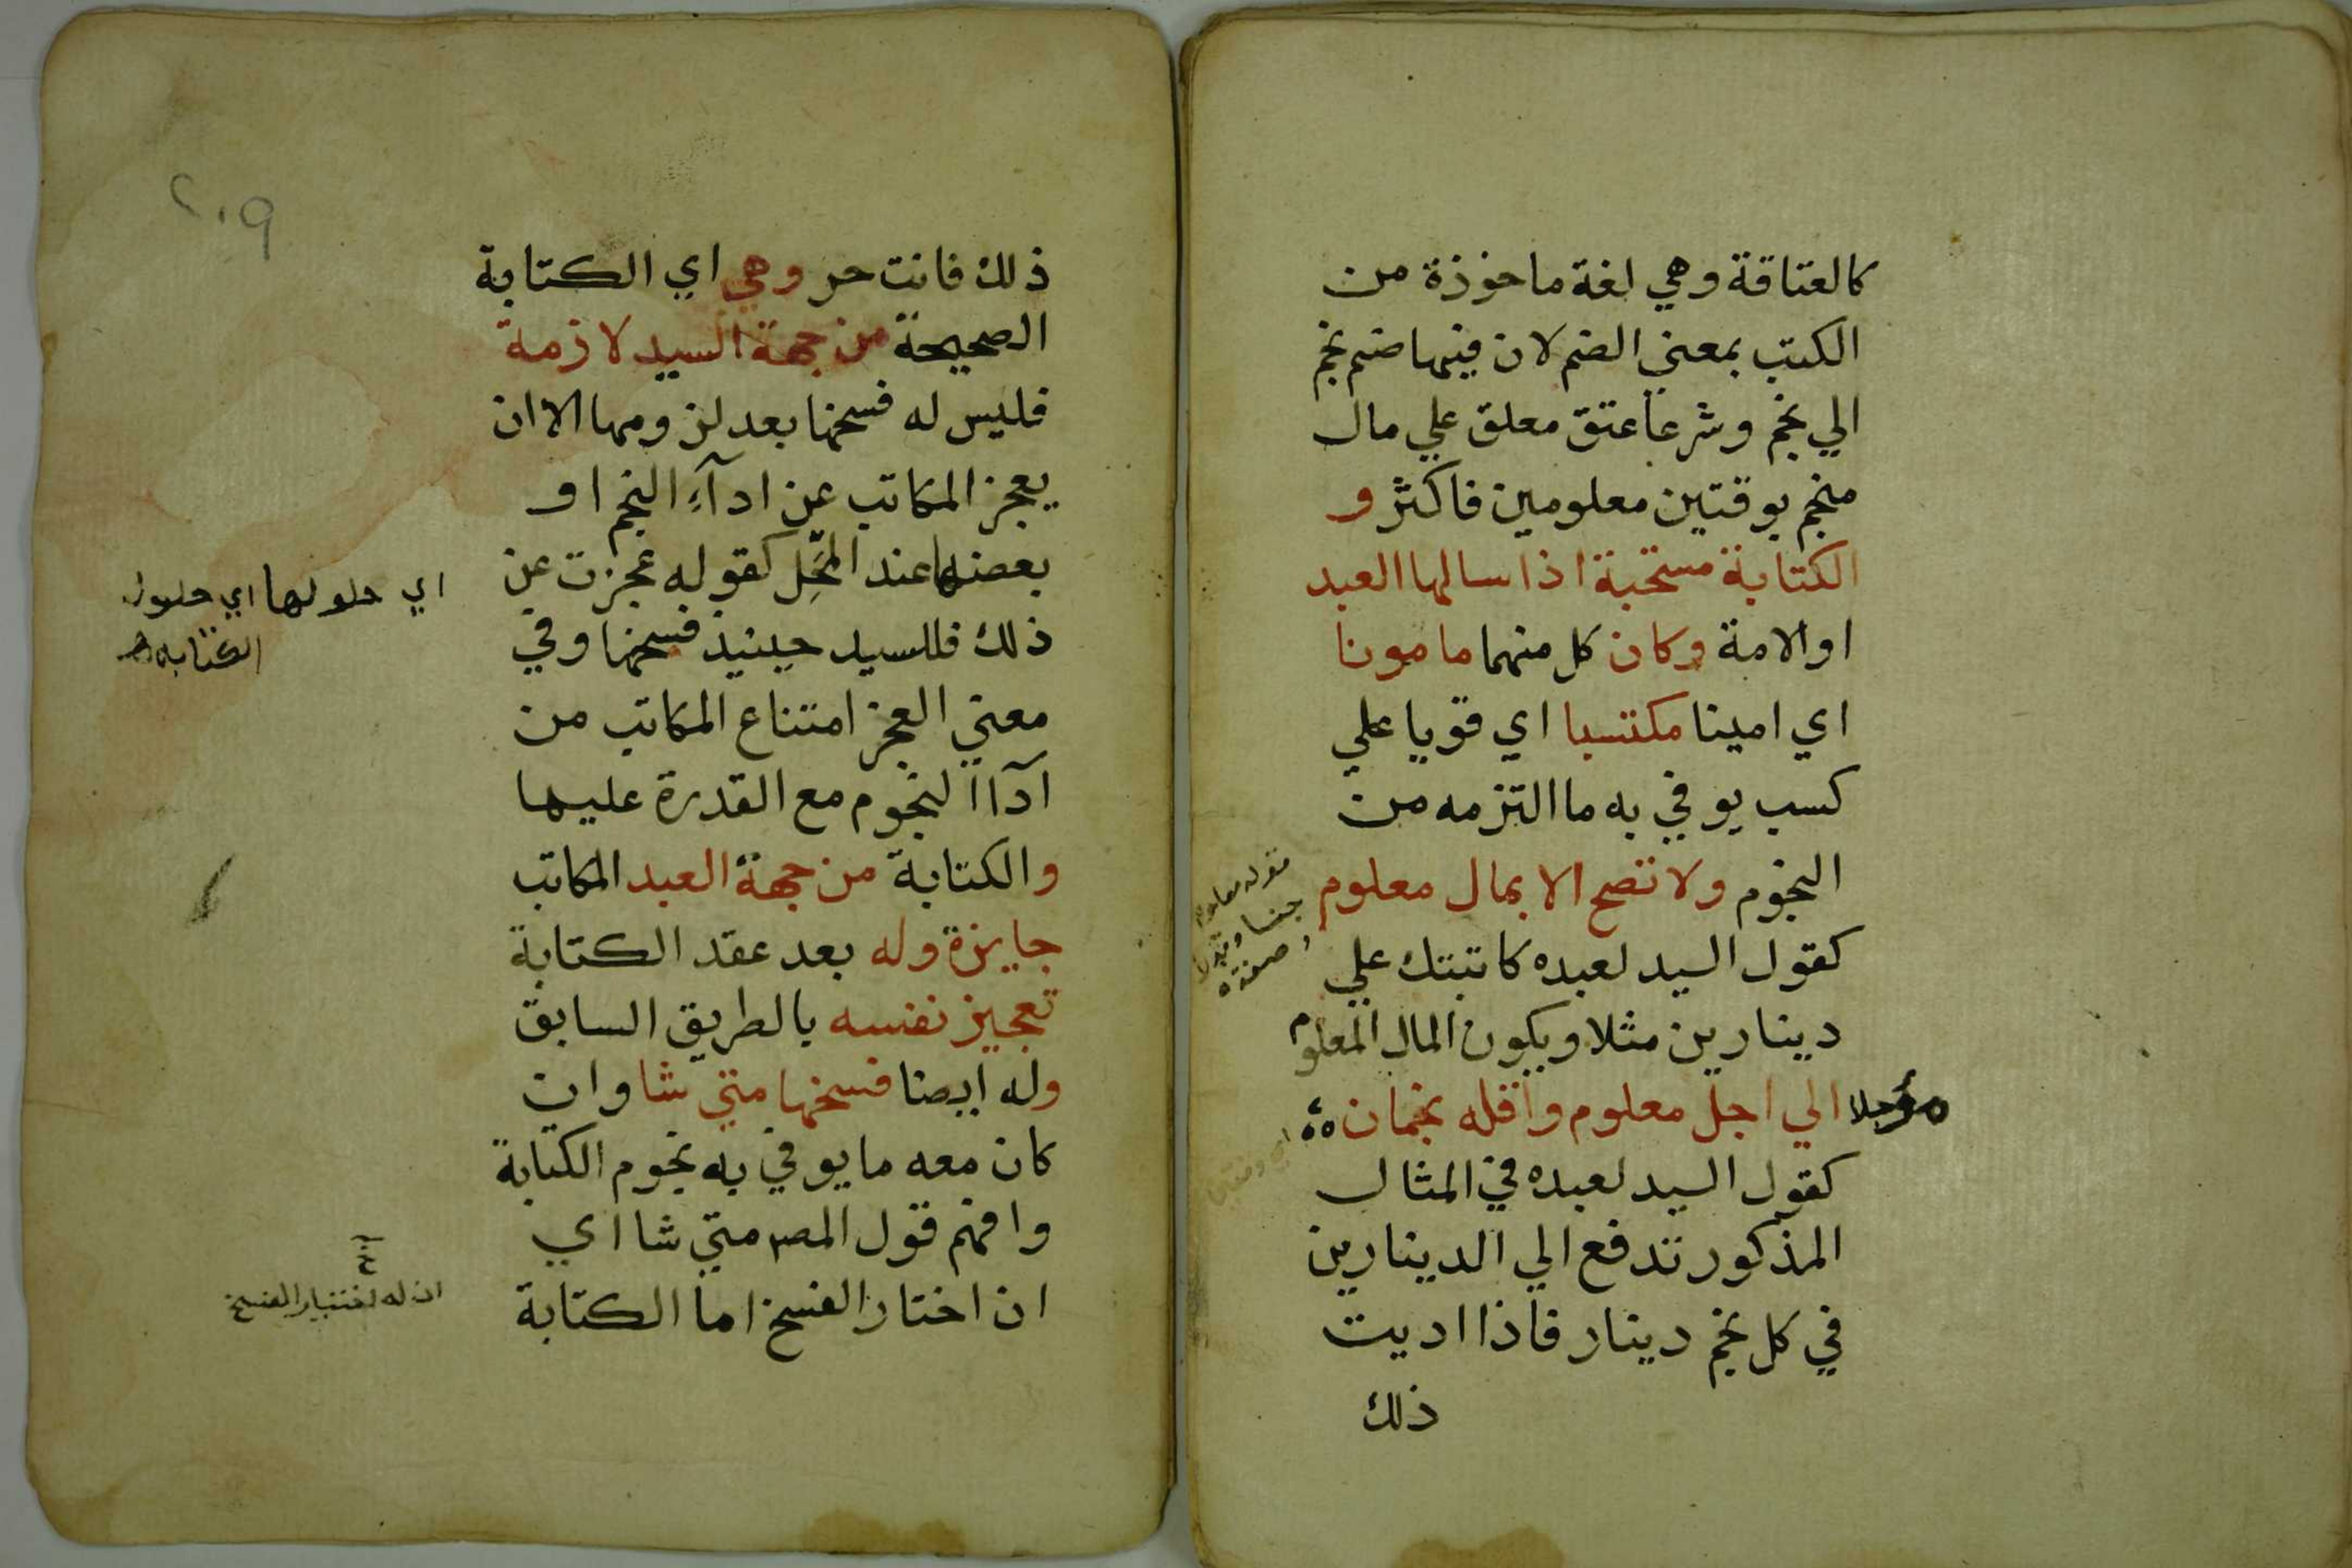 كالعتاقة وهي لغة ماخوذة من
الكتب بمعني الضم لان فيها ضم نجم
الي نجم وشرعا عتق معلق علي مال
منجم بوقتين معلومين فاكثر و
الكتابة مستحبة اذا سالها العبد
او الامة وكان كل منهما مامونا
اي امينا مكتسبا اي قويا علي
كسب يوفي به ما التزمه من
النجوم ولا تصح الا بمال معلوم
كقول السيد لعبده كاتبتك علي
دينارين مثلا ويكون المال المعلوم
مؤجلا الي اجل معلوم واقله نجمان
كقول السيد لعبده في المثال
المذكور تدفع الي الدينارين
في كل نجم دينار فاذا اديت
ذلك
قوله معلوم
جنسا
وصفة
٢٠٩
ذلك فانت حر وهي اي الكتابة
الصحيحة من جهة السيد لازمة
فليس له فسخها بعد لزومها الا ان
يعجز المكاتب عن ادآءِ النجم او
بعضها عند المَحِل كقوله عجزت عن
ذلك فللسيد حينيذ فسخها وفي
معني العجز امتناع المكاتب من
آداا لنجوم مع القدرة عليها
والكتابة من جهة العبد المكاتب
جايزة وله بعد عقد الكتابة
تعجيز نفسه بالطريق السابق
وله ايضا فسخها متي شا وان
كان معه ما يوفي به نجوم الكتابة
وافهم قول المصر متي شا اي
ان اختار الفسخ اما الكتابة
اي حلولها اي حلول
الكتابة
ان له اختيار الفسخ